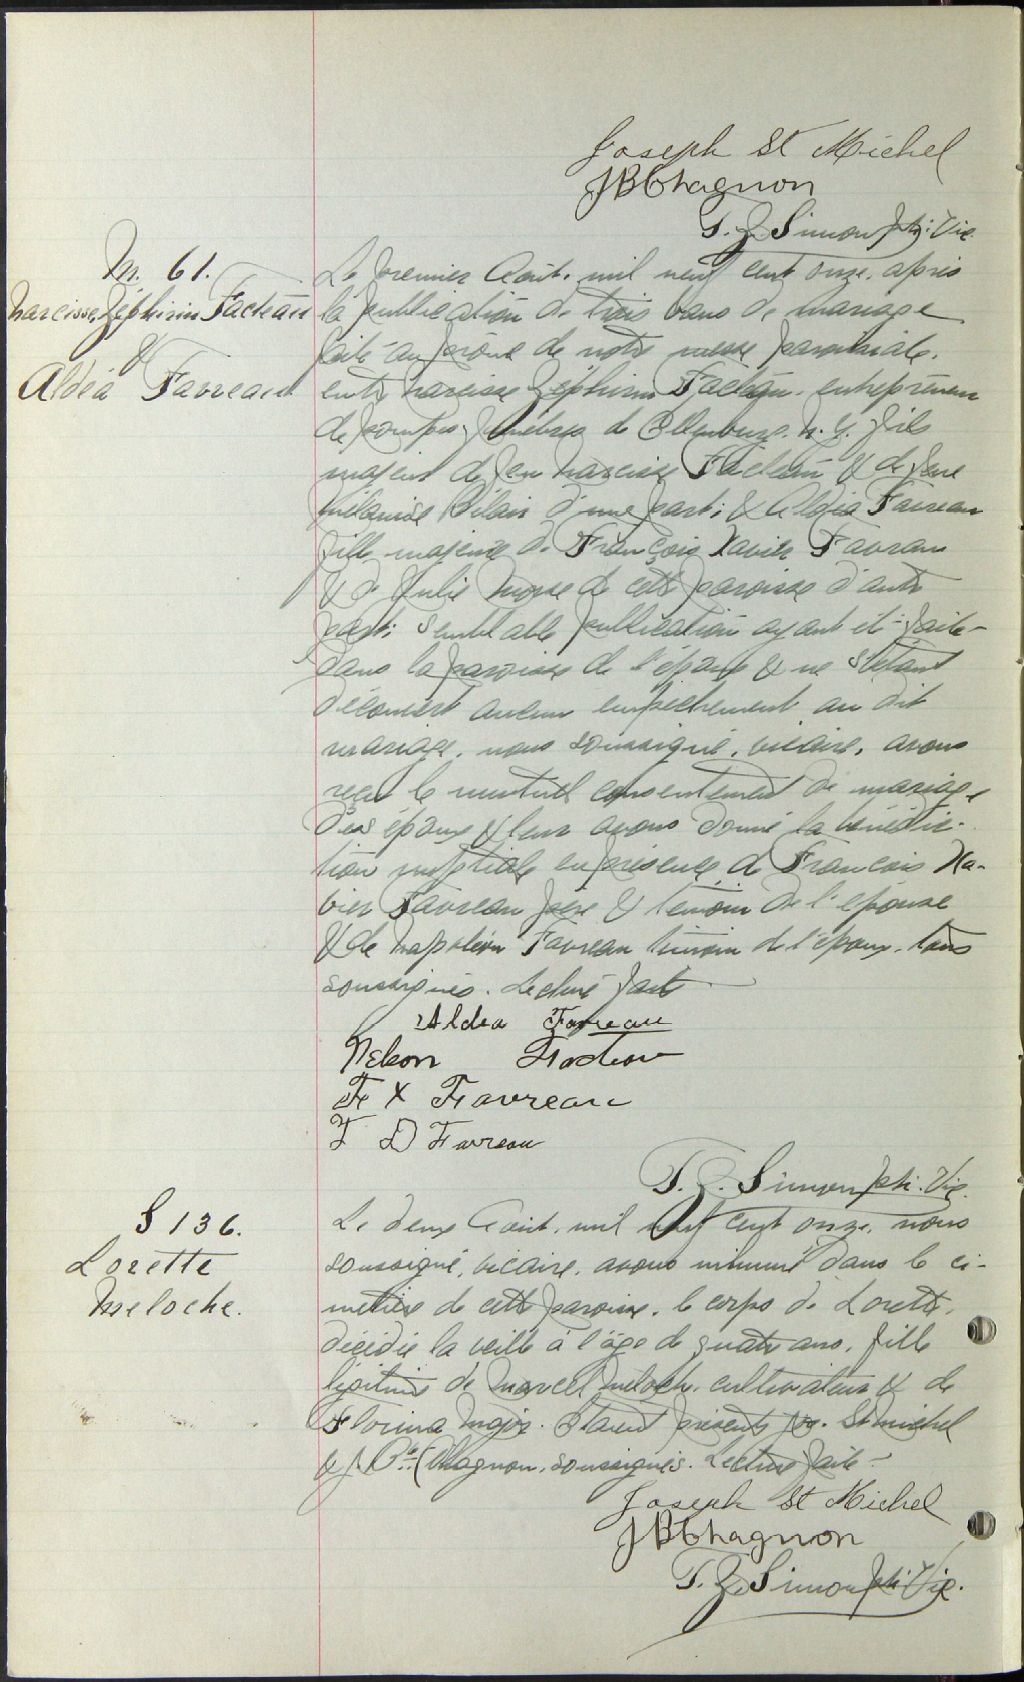 Joseph St Michel
JBChagnon
T. Z. Simon ptr. Vic.
M. 61.
Narcisse Zéphirin Facteau
&
Aldéa Favreau
Le premier Août, mil neuf cent onze, après
la publication de trois bans de mariage
faite au prône de notre messe paroissiale,
entre Narcisse Zéphirin Facteau, entrepreneur
de pompes funèbres de N. Y. fils
majeur de feu Narcisse Facteau & de feue
Bilair d'une part; & Aldéa Favreau
fille majeure de François Xavier Favreau
& de Julie de cette paroisse d'autre
part; semblable publication ayant été faite
dans la paroisse de l'époux & ne s'étant
découvert aucun empêchement au dit
mariage, nous soussigné, vicaire, avons
reçu le mutuel consentement de mariage
des époux & leur avons donné la bénédic-
tion nuptiale en présence de François Xa-
vier Favreau père & témoin de l'épouse
& de Napoléon Favreau témoin de l'époux, tous
soussignés. Lecture faite
Aldea Favreau
Nelson
F X Favreau
F D Favreau
T. Z. Simon ptr. Vic.
S 136.
Lorette
Meloche.
Le deux Août, mil neuf cent onze, nous
soussigné, vicaire, avons inhumé dans le ci-
metière de cette paroisse, le corps de Lorette,
décédée la veille à l'âge de quatre ans, fille
légitime de Marcel Meloche, cultivateur & de
Florina Major. Etaient présents Jos. St Michel
& J. Bte Chagnon, soussignés. Lecture faite
Joseph St Michel
JBChagnon
T. Z. Simon ptr. Vic.